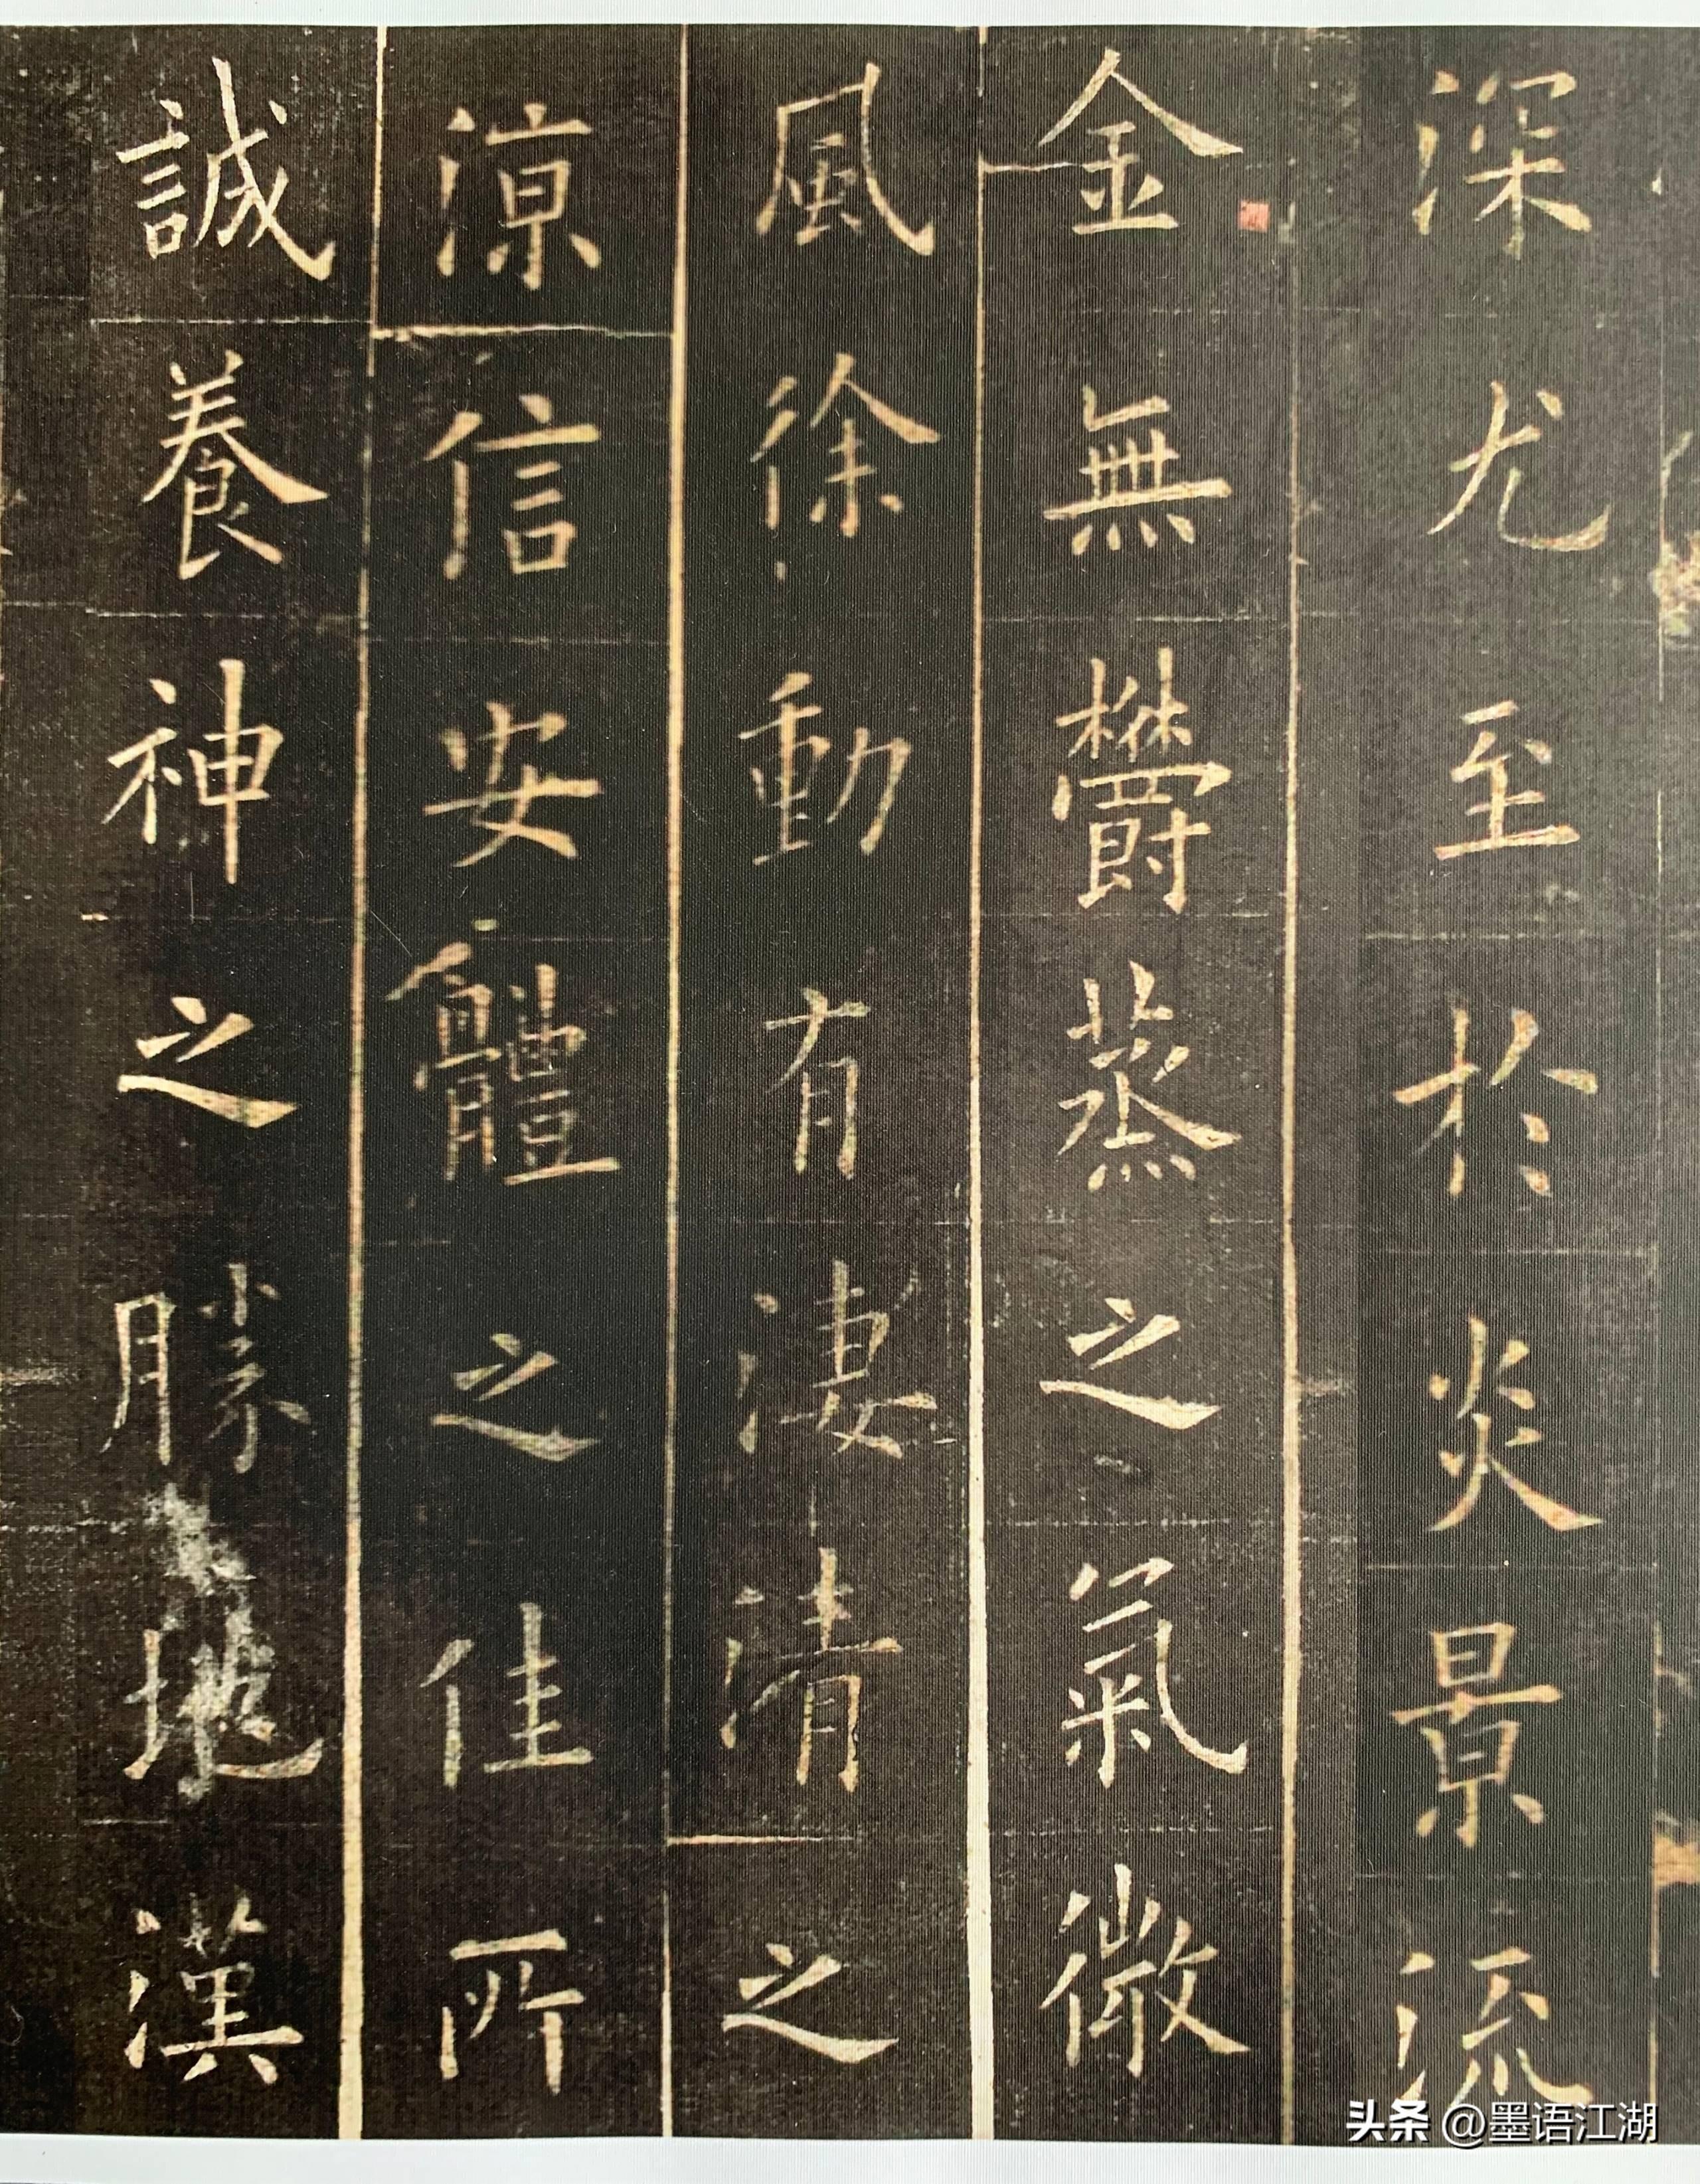 深尤至於炎景流
金無欝蒸之氣微
風徐動有淒清之
涼信安體之佳所
誠養神之勝地漢
头条 @墨语江湖